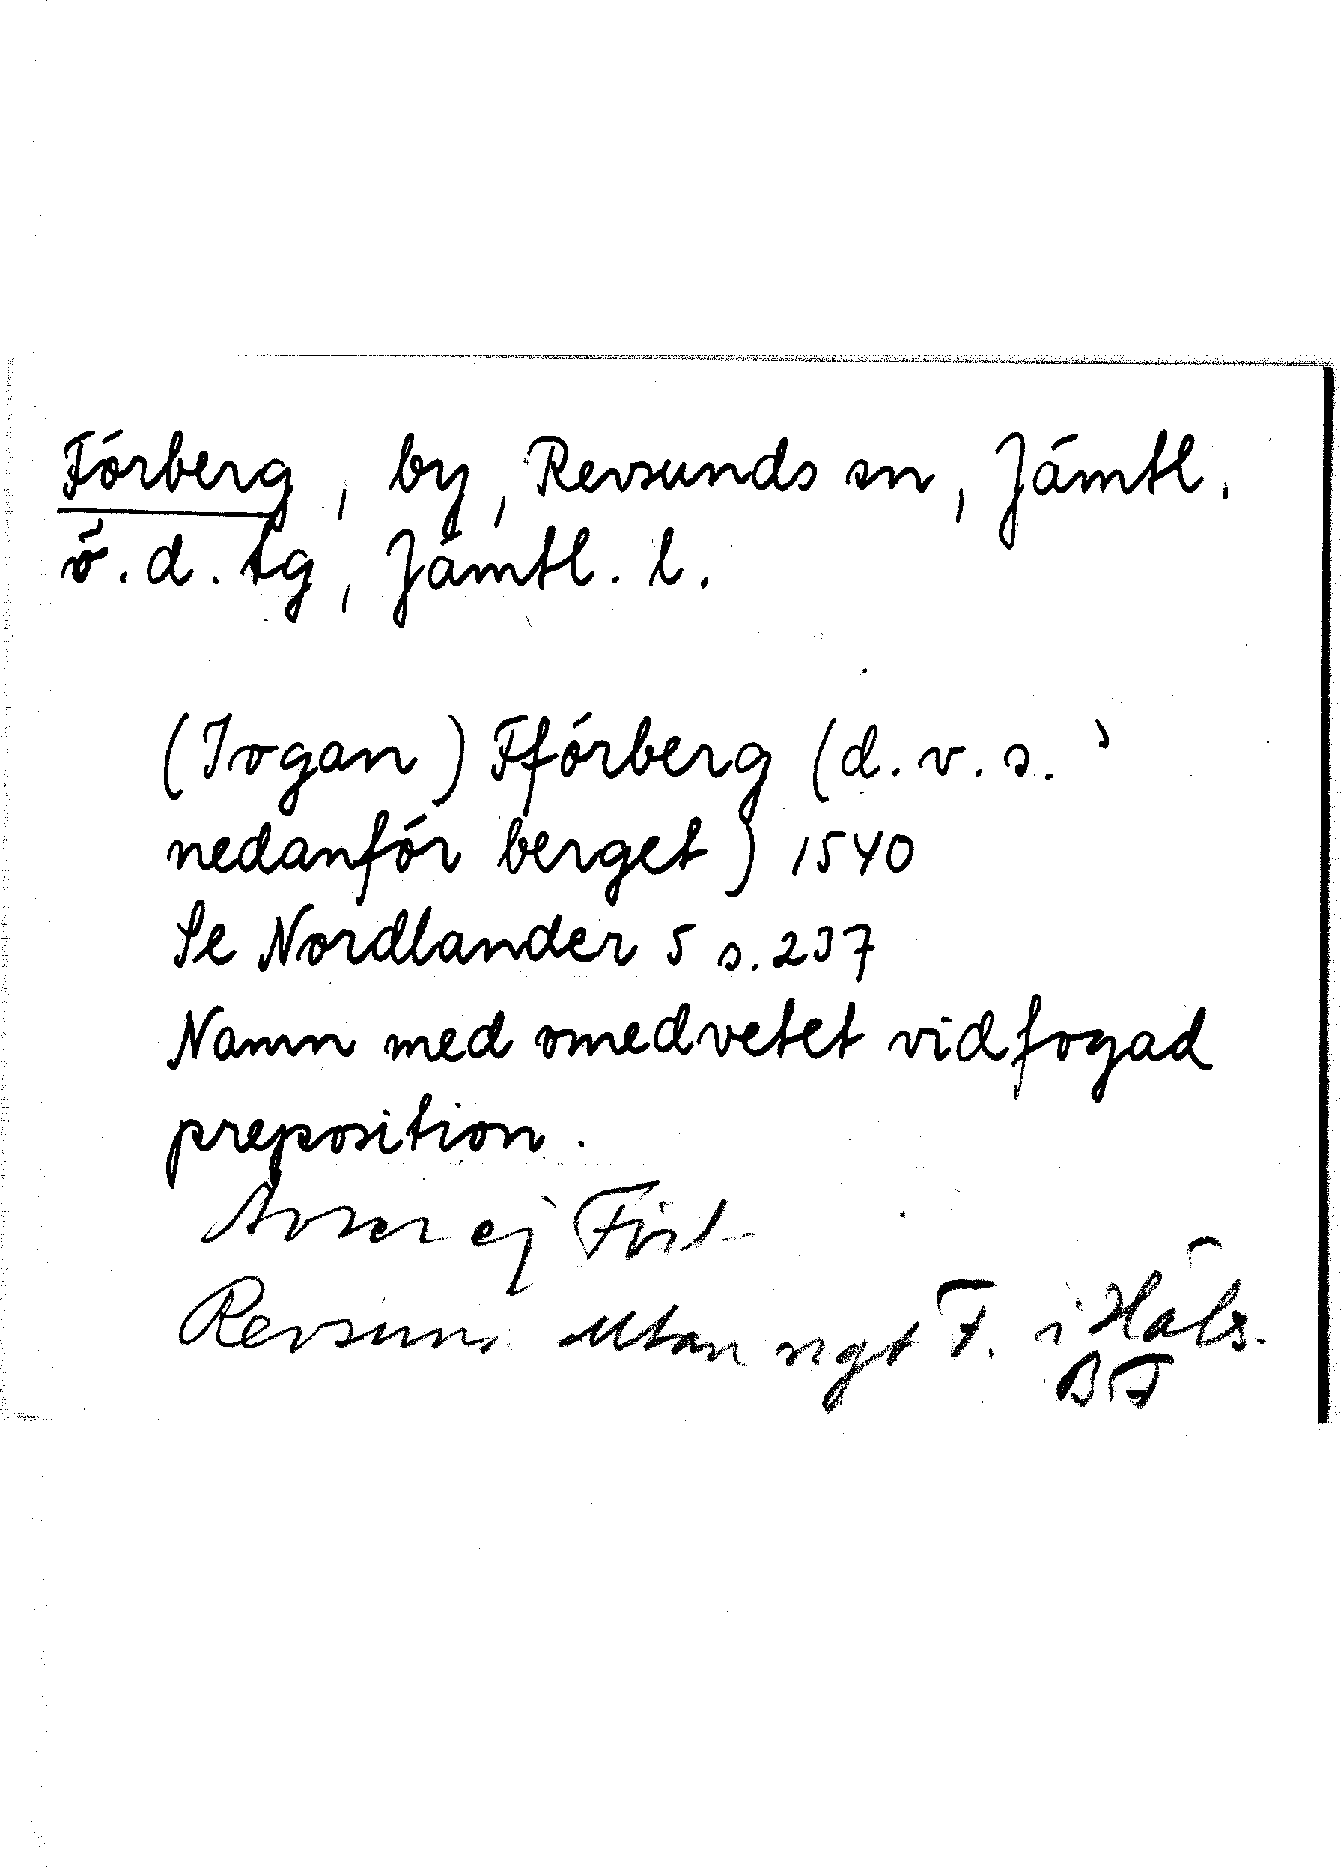 Förberg, by, Revsunds sn, Jämtl.
ö.d. tg, Jämtl. l.
(Jogan) Fförberg (d.v.s. '
nedanför berget) 1540
Se Nordlander 5 s. 237
Namn med omedvetet vidfogad
preposition.
Avser ej
Revsund utan ngt F. i Häls.
BF